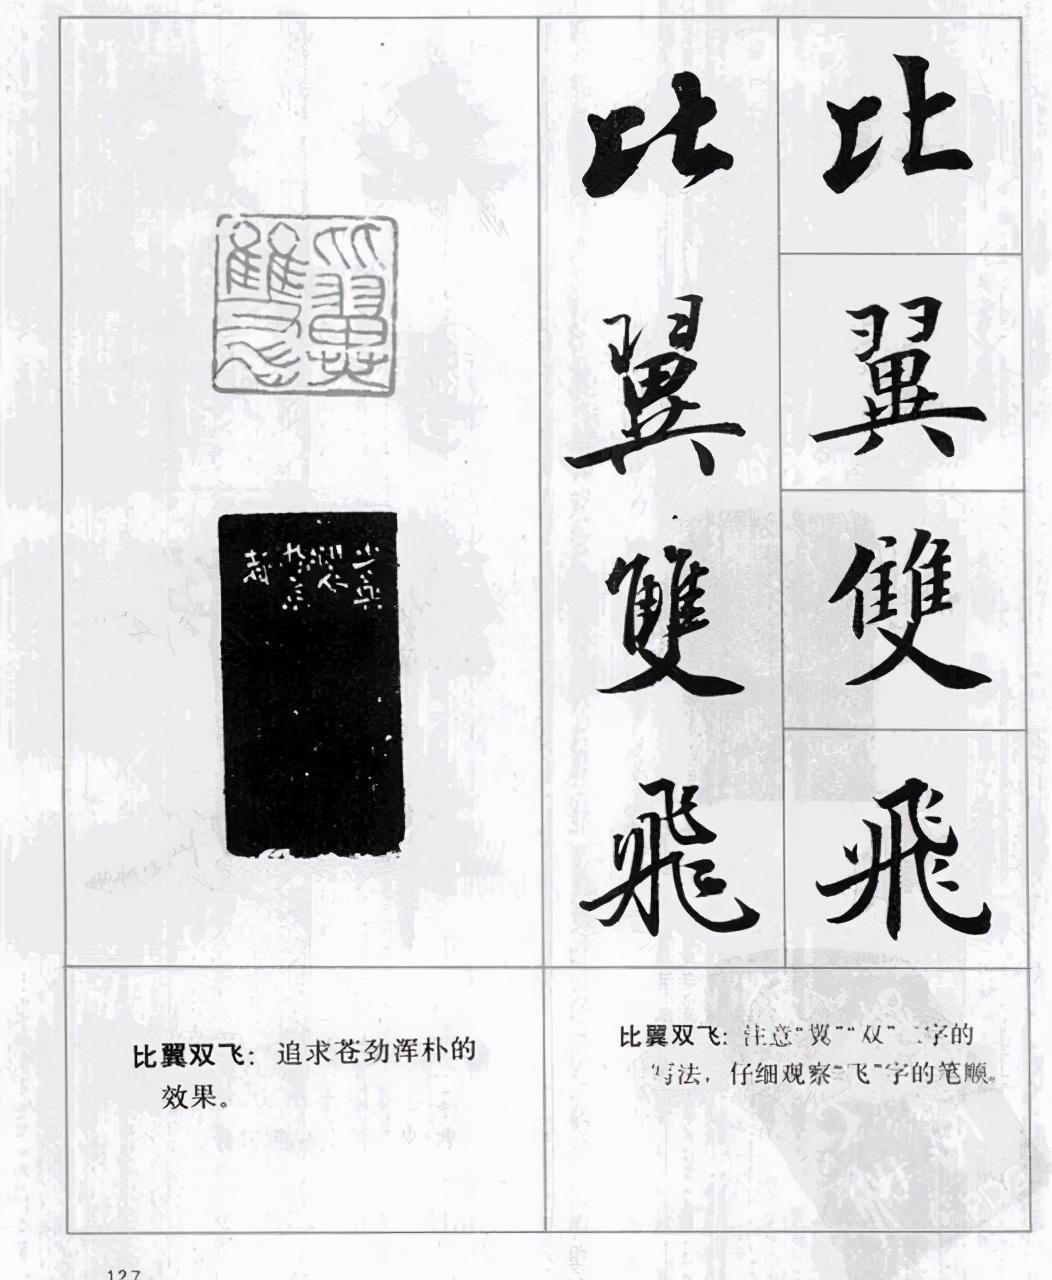 比翼雙飛
比翼雙飛
比翼双飞：追求苍劲浑朴的
效果。
比翼双飞：注意“翼”“双”二字的
写法，仔细观察“飞”字的笔顺。
127